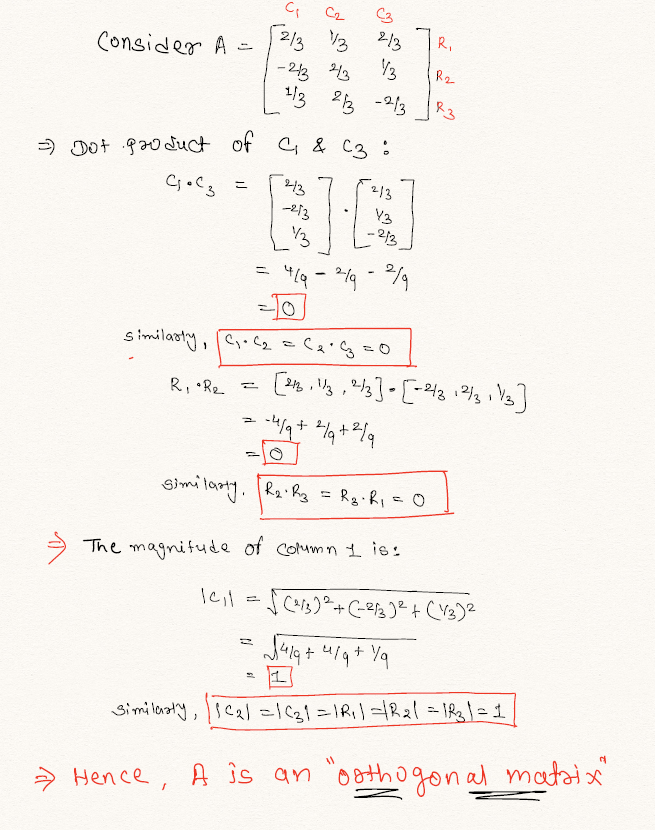 C1 C2 C3
Consider A = [2/3 1/3 2/3] R1
[-2/3 2/3 1/3] R2
[1/3 2/3 -2/3] R3
⇒ Dot product of C1 & C3 :
C1•C3 = [2/3 -2/3 1/3] . [2/3 1/3 -2/3]
= 4/9 - 2/9 - 2/9
= 0
similarly, C1•C2 = C2•C3 = 0
R1•R2 = [2/3, 1/3, 2/3]•[-2/3, 2/3, 1/3]
= -4/9 + 2/9 + 2/9
= 0
similarly, R2•R3 = R3•R1 = 0
⇒ The magnitude of column 1 is:
|C1| = √(2/3)² + (-2/3)² + (1/3)²
= √4/9 + 4/9 + 1/9
= 1
similarly, |C2| = |C3| = |R1| = |R2| = |R3| = 1
⇒ Hence, A is an "orthogonal matrix"